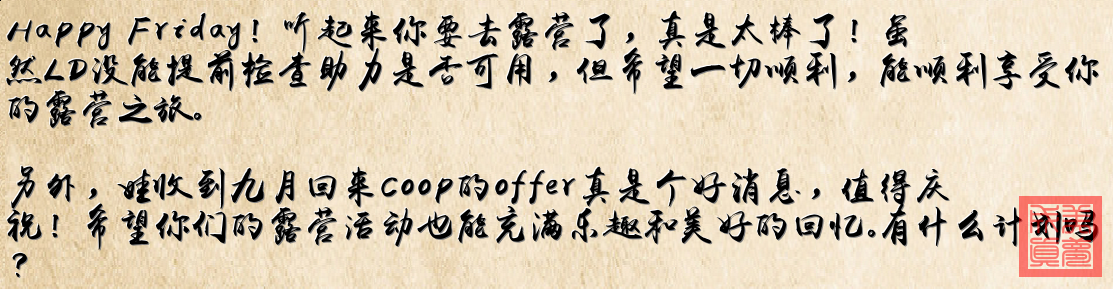 Happy Friday! 听起来你要去露营了，真是太棒了！虽
然LD没能提前检查助力是否可用，但希望一切顺利，能顺利享受你
的露营之旅。
另外，娃收到九月回来coop的offer真是个好消息，值得庆
祝！希望你们的露营活动也能充满乐趣和美好的回忆。有什么计划吗
？